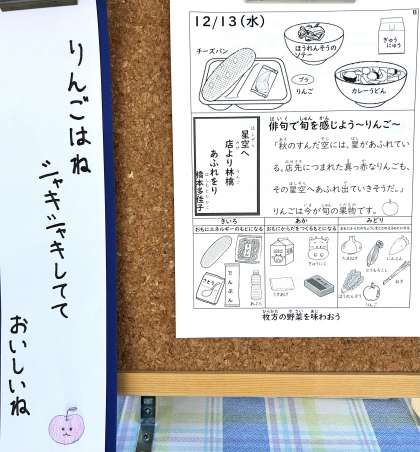 りんごはね
シャキシャキしてて
おいしいね
12/13(水)
チーズパン
ほうれんそうのソテー
ぎゅうにゅう
プラ
りんご
カレーうどん
星空へ
店より林檎
あふれをり
橋本多佳子
俳句で旬を感じよう～りんご～
「秋のすんだ空には、星があふれている。店先につまれた真っ赤なりんごも、その星空へあふれ出ていきそうだ。」
りんごは今が旬の果物です。
きいろ
あか
みどり
おもにエネルギーのもとになる
おもにからだをつくるもとになる
さとう
でんぷん
ぎゅうにく
たまねぎ
にんじん
ほうれんそう
りんご
ねぎ
枚方の野菜を味わおう